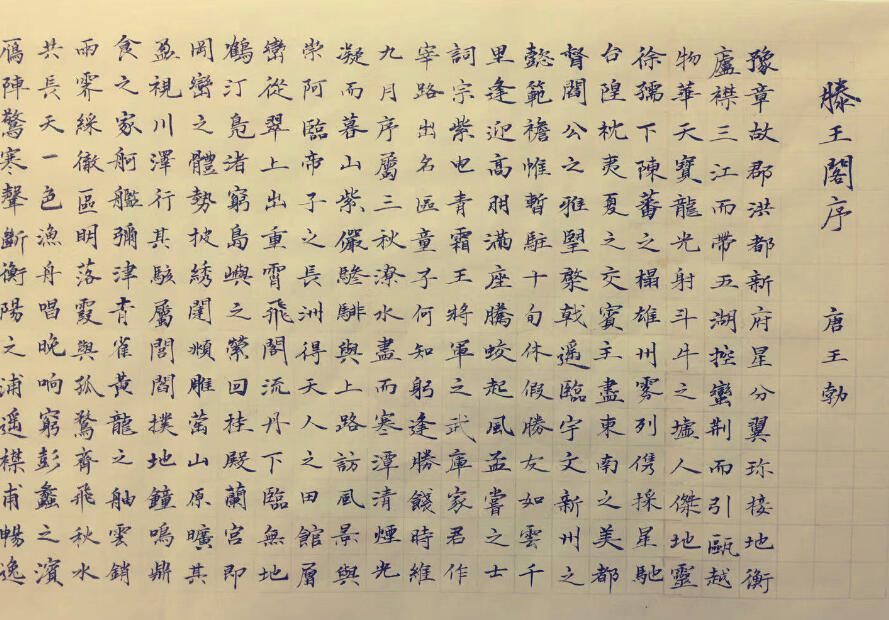 滕王閣序 唐王勃
豫章故郡洪都新府星分翼珎接地衡
廬襟三江而帶五湖控蠻荆而引甌越
物華天寶龍光射斗牛之墟人傑地靈
徐孺下陳蕃之榻雄州霧列儁採星馳
台隍枕夷夏之交賓主盡東南之美都
督閻公之雅望棨戟遥臨宇文新州之
懿範襜帷暫駐十旬休假勝友如雲千
里逢迎高朋滿座騰蛟起風孟嘗之士
詞宗紫电青霜王將軍之武庫家君作
宰路出名區童子何知躬逢勝餞時維
九月序屬三秋潦水盡而寒潭清煙光
凝而暮山紫儼驂騑與上路訪風景與
崇阿臨帝子之長洲得天人之田館層
巒從翠上出重霄飛閣流丹下臨無地
鶴汀鳧渚窮島嶼之縈回桂殿蘭宫即
岡巒之體勢披綉闥頫雕甍山原曠其
盈視川澤行其駭屬閭閻撲地鐘鳴鼎
食之家舸艦彌津青雀黃龍之舳雲銷
雨霽綵徹區明落霞與孤鶩齊飛秋水
共長天一色漁舟唱晚响窮彭蠡之濱
鴈陣驚寒聲斷衡陽之浦遥襟甫暢逸